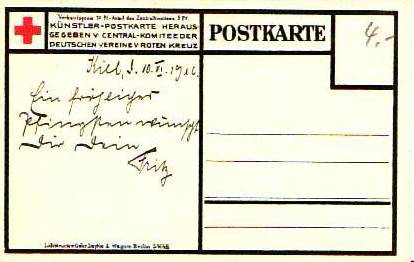 Verkaufspreis 10 Pf.-Anteil des Zentralkomitees 2 Pf.
KÜNSTLER-POSTKARTE HERAUS
GEGEBEN V CENTRAL-KOMITEE DER
DEUTSCHEN VEREINE V ROTEN KREUZ
POSTKARTE
4,-
Kiel, d. 10.VI.1916.
Ein fröhliches
Pfingsten wünscht
Dir Dein
Fritz
Berlin SW68